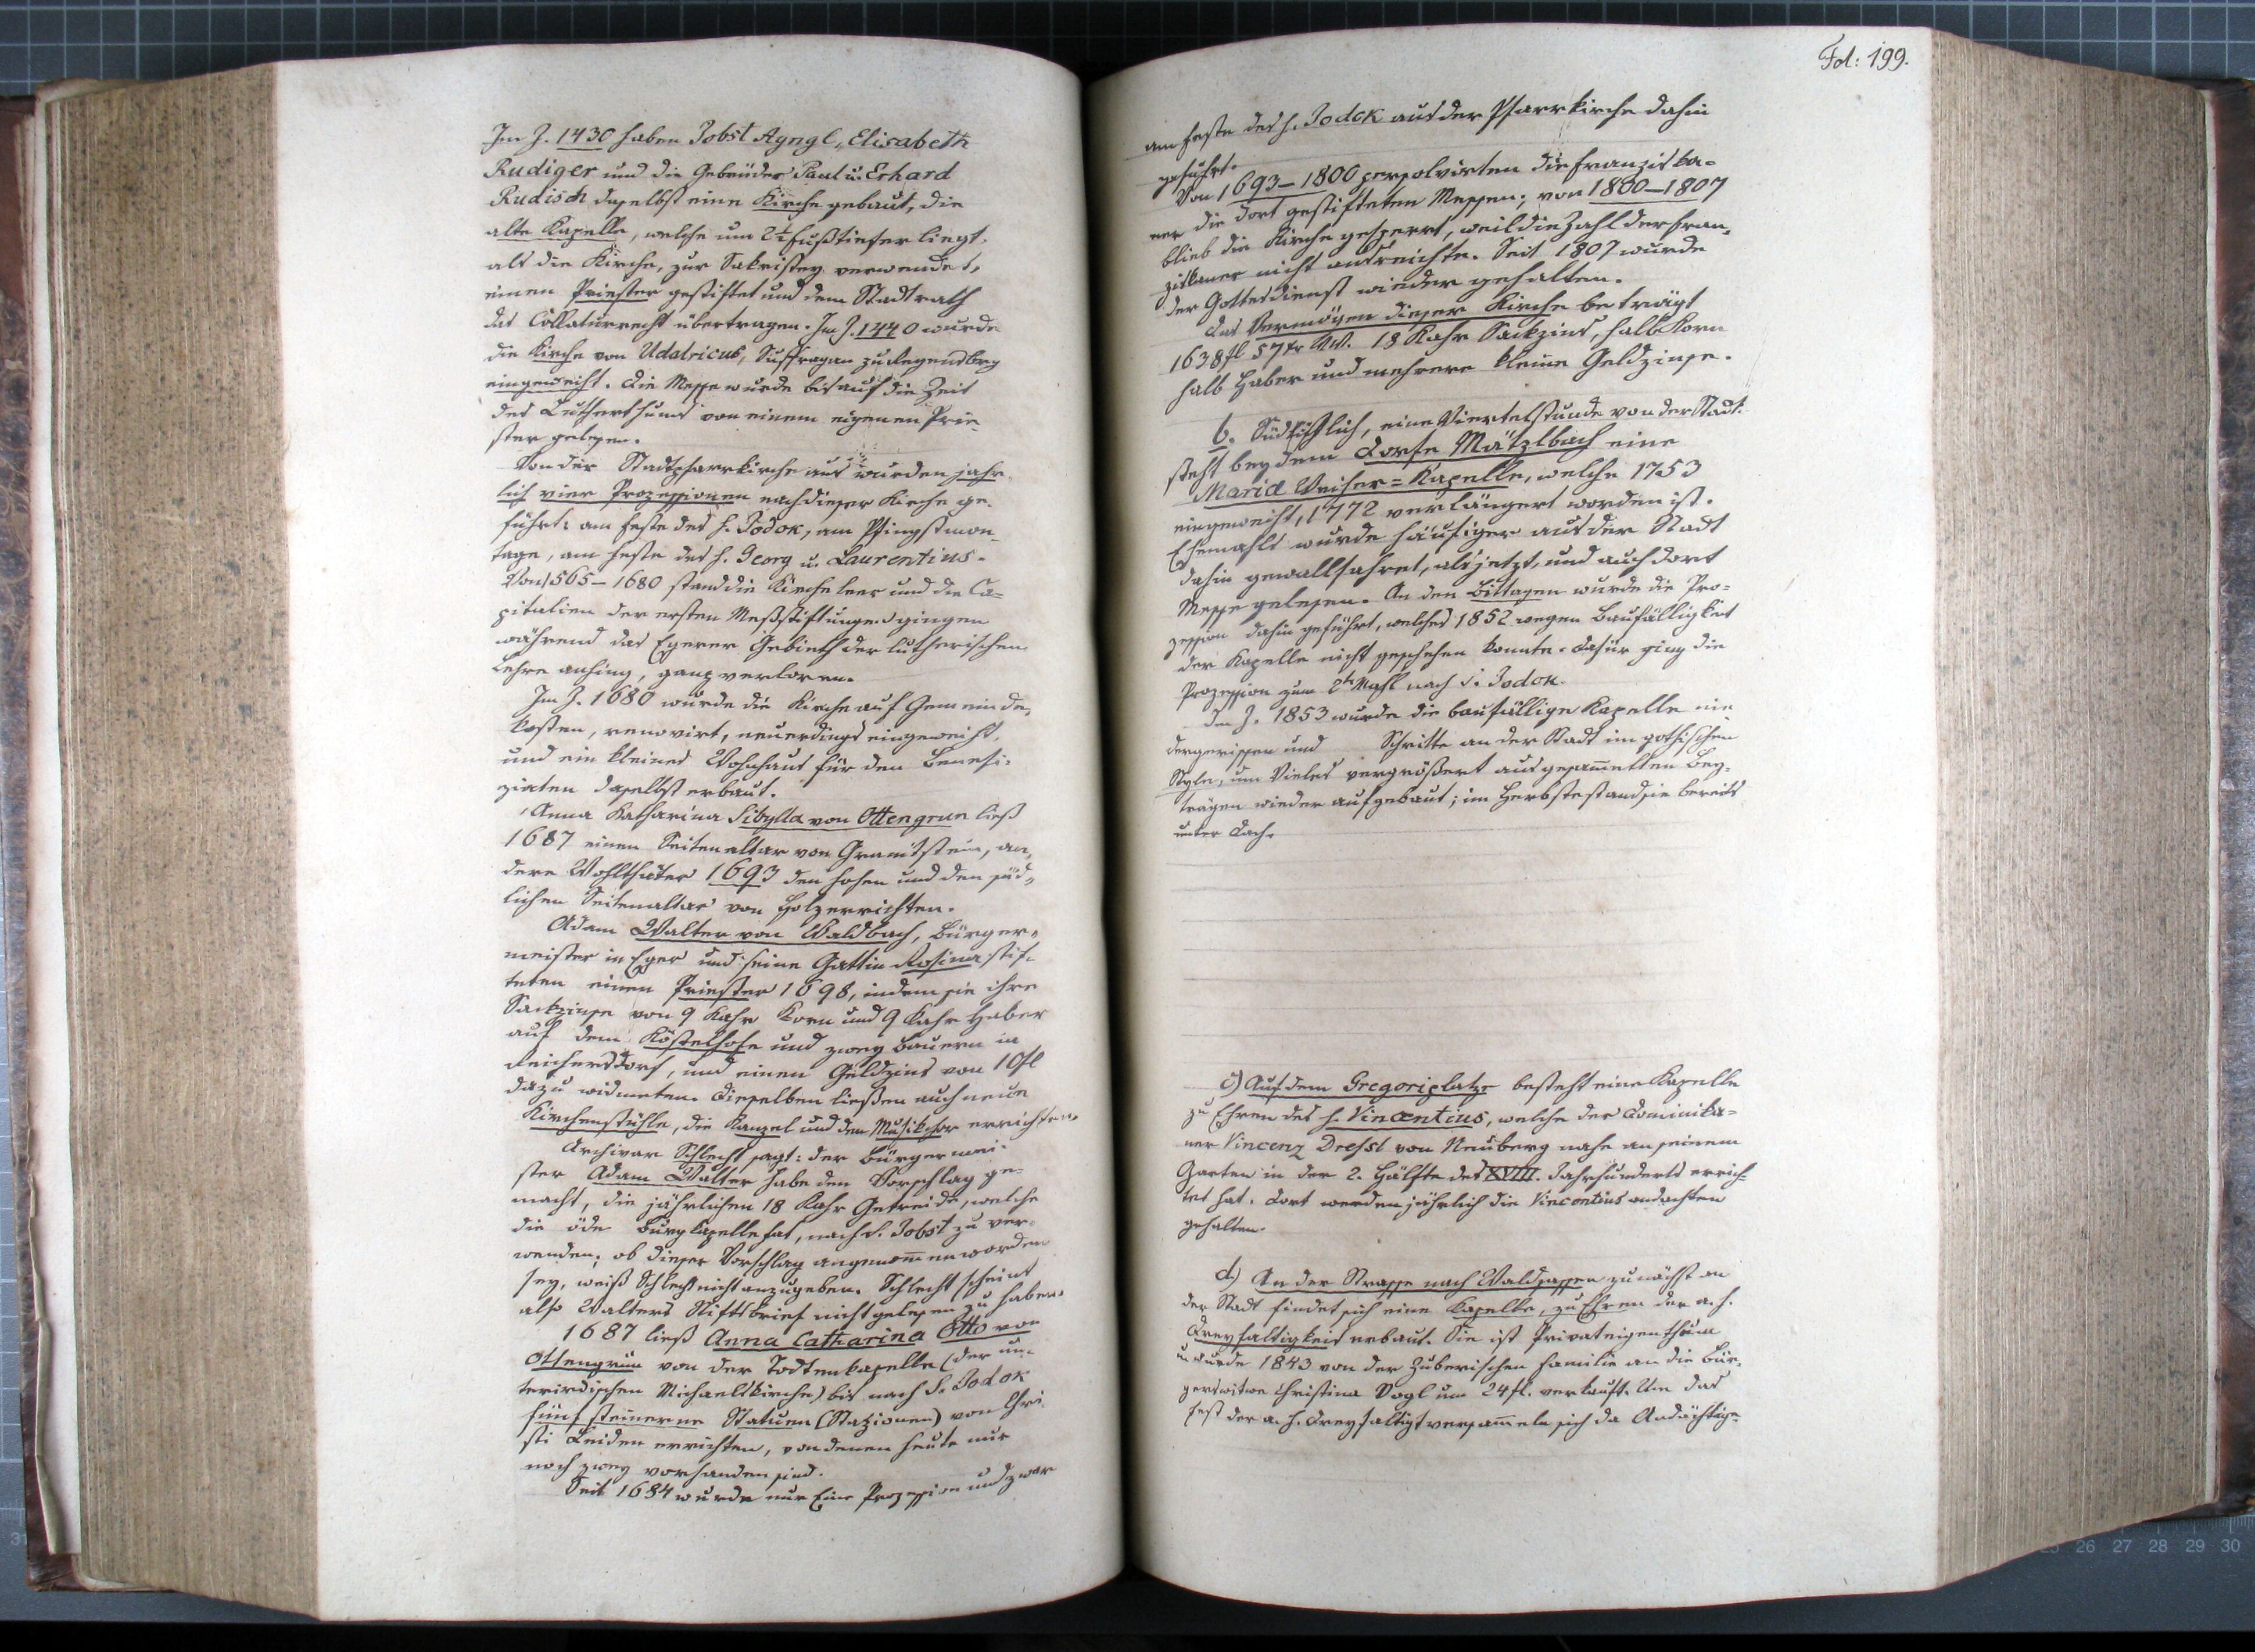 Im J. 1430 haben Jobst Ayngl, Elisabeth
Rudiger und die Gebrüder Paul u. Erhard
Rudisch daselbst eine Kirche gebaut, die
alte Kapelle, welche um 2½ Fuß tiefer liegt,
als die Kirche, zur Sakristey verwendet,
einen Priester gestiftet und dem Stadtrath
das Collaturrecht übertragen. Im J. 1440 wurde
die Kirche von Udalricus, Suffragan zu Regensburg
eingeweiht. Die Messe wurde bis auf die Zeit
des Lutherthums von einem eigenen Prie-
ster gelesen.
Von der Stadtpfarrkirche aus wurden jähr-
lich vier Prozessionen nach dieser Kirche ge-
führt: am Feste des h. Jodok, am Pfingstmon-
tage, am Feste des h. Georg u. Laurentius.
Von 1565–1680 stand die Kirche leer und die Ca-
pitalien der ersten Meßstiftungen gingen
während das Egerer Gebieth der lutherischen
Lehre anhing, ganz verloren.
Im J. 1680 wurde die Kirche auf Gemeinde-
kosten, renovirt, neuerdings eingeweiht,
und ein kleines Wohnhaus für den Benefi-
ziaten daselbst erbaut.
Anna Katharina Sibylla von Ottengrun ließ
1687 einen Seitenaltar von Granitstein, an-
dere Wohlthäter 1693 den hohen und den süd-
lichen Seitenaltar von Holz errichten.
Adam Walter von Waldbach, Bürger-
meister in Eger und seine Gattin Rosina stif-
teten einen Priester 1698, indem sie ihre
Sackzinse von 9 Kahr Korn und 9 Kahr Haber
auf dem Köstelhofe und zwey Bauern in
Reichersdorf, und einen Geldzins von 10 fl
dazu widmeten. Dieselben ließen auch neue
Kirchenstühle, die Kanzel und den Musikchor errichten.
Archivar Schlecht sagt: der Bürgermei-
ster Adam Walter habe den Vorschlag ge-
macht, die jährlichen 18 Kahr Getreide, welche
die öde Burgkapelle hat, nach S. Jobst zu ver-
wenden; ob dieser Vorschlag angenom̅en worden
sey, weiß Schlecht nicht anzugeben. Schlecht scheint
also Walters Stiftsbrief nicht gelesen zu haben.
1687 ließ Anna Catharina Otto von
Ottengrün von der Todtenkapelle (der un-
terirdischen Michaelskirche) bis nach S. Jodok
fünf steinerne Statuen (Stazionen) von Chri-
sti Leiden errichten, von denen heute nur
noch zwey vorhanden sind.
Seit 1684 wurde nur Eine Prozession und zwar
Fol: 199.
am Feste des h. Jodok aus der Pfarrkirche dahin
geführt.
Von 1693–1800 persolvirten die Franziska-
ner die dort gestifteten Messen; von 1800–1807
blieb die Kirche gesperrt, weil die Zahl der Fran-
ziskaner nicht ausreichte. Seit 1807 wurde
der Gottesdienst wieder gehalten.
Das Vermögen dieser Kirche beträgt
1638 fl 57 kr W.W. 18 Kahr Sackzins, halb Korn
halb Haber und mehrere kleine Geldzinse.
b. Südöstlich, eine Viertelstunde von der Stadt
steht bey dem Dorfe Mätzlbach eine
Maria Weiher=Kapelle, welche 1753
eingeweiht, 1772 verlängert worden ist.
Ehemahls wurde häufiger aus der Stadt
dahin gewallfahret, als jetzt, und auch dort
Messe gelesen. An den Bittagen wurde die Pro-
zession dahin geführt, welches 1852 wegen Baufälligkeit
der Kapelle nicht geschehen konnte. Dafür ging die
Prozession zum 2ten Mahl nach S. Jodok.
Im J. 1853 wurde die baufällige Kapelle nie
dergerissen und Schritte an der Stadt im gothischen
Style, um Vieles vergrößert aus gesam̅elten Bey-
trägen wieder aufgebaut; im Herbste stand sie bereits
unter Dach.
c) Auf dem Gregoriplatze besteht eine Kapelle
zu Ehren des h. Vincentius, welche der Dominika-
ner Vincenz Dressl von Neuberg nahe an seinem
Garten in der 2. Hälfte des XVIII. Jahrhunderts errich-
tet hat. Dort werden jährlich die Vincentius andachten
gehalten.
d) An der Strasse nach Waldsassen zunächst an
der Stadt findet sich eine Kapelle, zu Ehren der a. h.
Dreyfaltigkeit erbaut. Sie ist Privateigenthum
u. wurde 1843 von der Zuberischen Familie an die Bür-
gerswitwe Christina Vogl um 24 fl. verkauft. Um das
Fest der a. h. Dreyfaltigt versam̅eln sich da Andächtige.